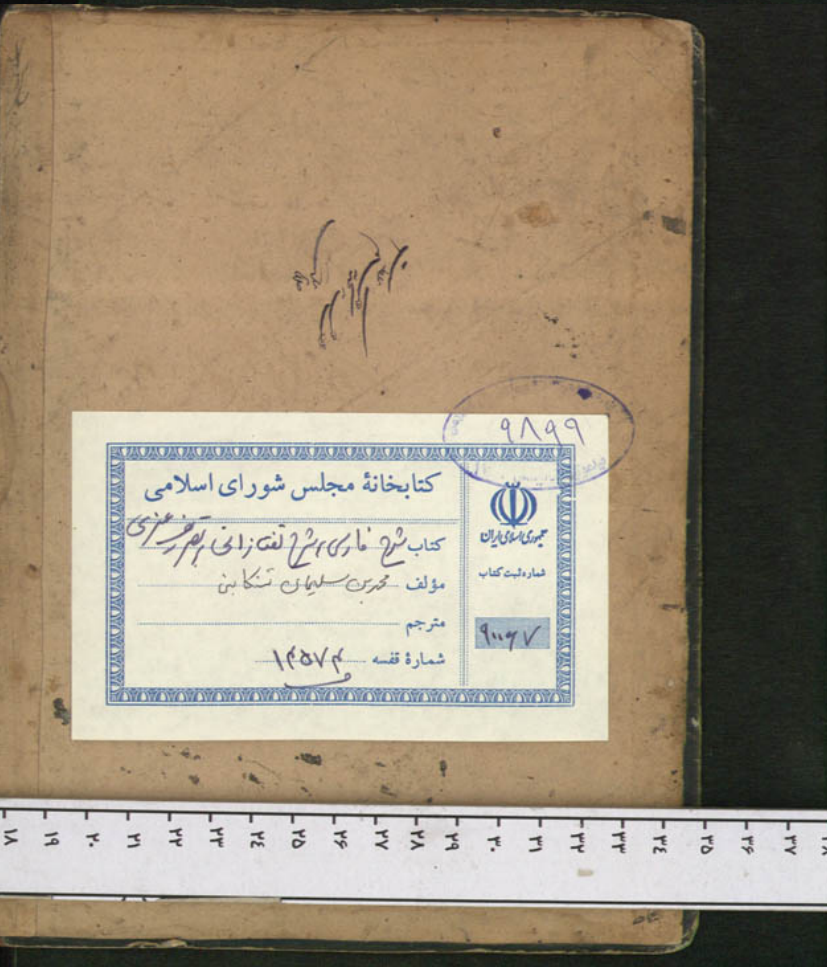 ۹۸۹۹
کتابخانهٔ مجلس شورای اسلامی
کتاب شرح فارسی بر شرح تفتازانی بر تصریف عزی
مؤلف محمد بن سلیمان تنکابنی
مترجم
شمارهٔ قفسه ۱۴۵۷۴
جمهوری اسلامی ایران
شماره ثبت کتاب
۹۰۰۶۷
۱۸ ۱۹ ۲۰ ۲۱ ۲۲ ۲۳ ۲۴ ۲۵ ۲۶ ۲۷ ۲۸ ۲۹ ۳۰ ۳۱ ۳۲ ۳۳ ۳۴ ۳۵ ۳۶ ۳۷ ۳۸